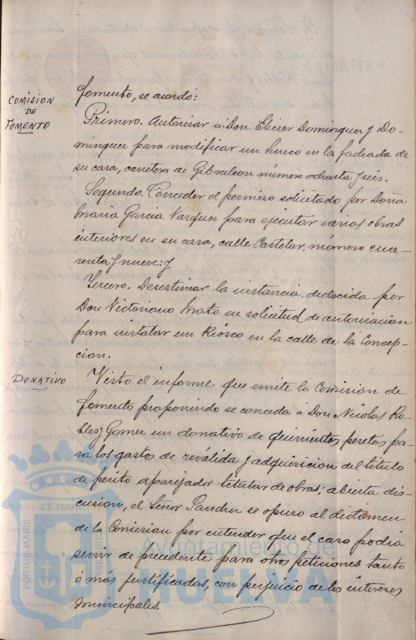 fomento, se acordó:
COMISION
DE
FOMENTO
Primero. Autorizar a Don Eliecer Dominguez y Do-
minguez para modificar un hueco en la fachada de
su casa, carretera de Gibraleon número ochenta y seis.
Segundo. Conceder el permiso solicitado por Doña
Maria Garcia Vazquez para ejecutar varias obras
interiores en su casa, calle Castelar, número cua-
renta y nueve; y
Tercero. Desestimar la instancia deducida por
Don Victoriano en solicitud de autorización
para instalar un Kiosco en la calle de la Concep-
cion.
DONATIVO
Visto el informe que emite la Comision de
fomento proponiendo se conceda a Don Nicolas Ro-
bles y Gomez un donativo de quinientas pesetas pa-
ra los gasto de reválida y adquisicion del titulo
de perito aparejador titular de obras; abierta dis-
cusion, el Señor se opuso al dictamen
de la Comision por entender que el caso podia
servir de precedente para otras peticiones tanto
ó más justificadas, con perjuicio de los intereses
municipales.
PORTUS MARIS
ET TERRE
Ayuntamiento de
HUELVA